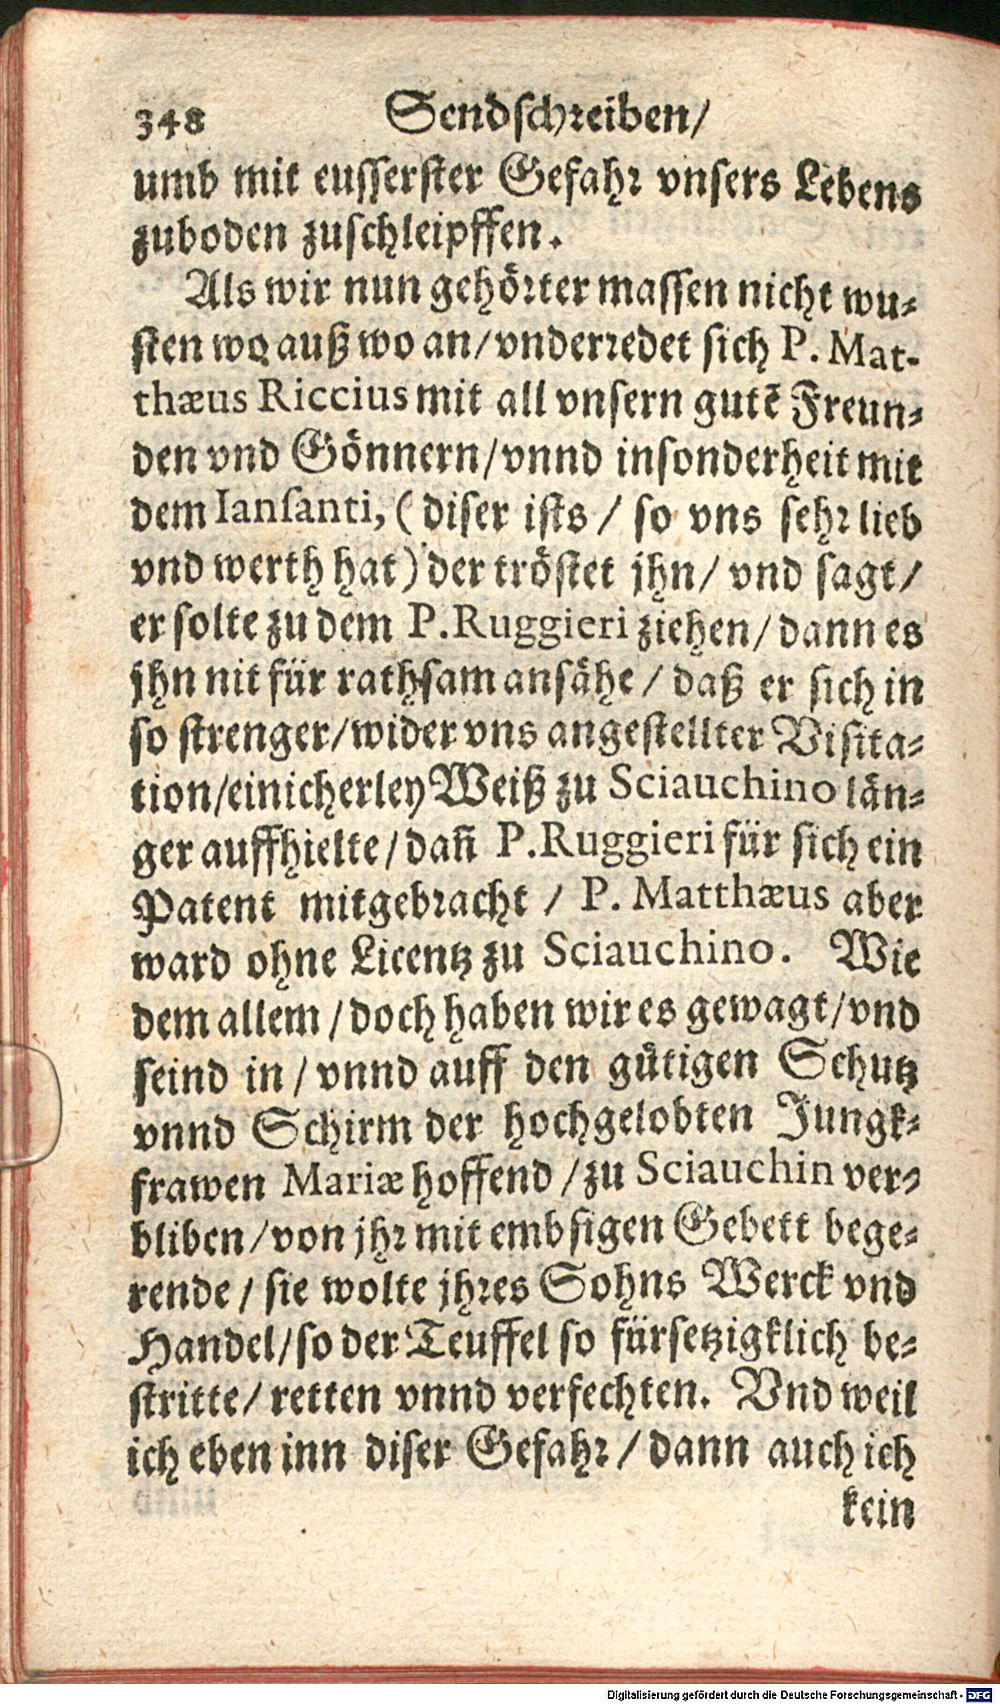 348 Sendschreiben/
umb mit eusserster Gefahr vnsers Lebens
zuboden zuschleipffen.
Als wir nun gehörter massen nicht wu-
sten wo auß wo an/vnderredet sich P. Mat-
thæus Riccius mit all vnsern gutẽ Freun-
den vnd Gönnern/vnnd insonderheit mit
dem Iansanti, (diser ists / so vns sehr lieb
vnd werth hat) der tröstet jhn/ vnd sagt/
er solte zu dem P. Ruggieri ziehen/dann es
jhn nit für rathsam ansähe / daß er sich in
so strenger/wider vns angestellter Visita-
tion/einicherley Weiß zu Sciauchino län-
ger auffhielte/dañ P. Ruggieri für sich ein
Patent mitgebracht / P. Matthæus aber
ward ohne Licentz zu Sciauchino. Wie
dem allem/doch haben wir es gewagt/vnd
seind in/ vnnd auff den gütigen Schutz
vnnd Schirm der hochgelobten Jungk-
frawen Mariæ hoffend /zu Sciauchin ver-
bliben/von jhr mit embsigen Gebett bege-
rende/ sie wolte jhres Sohns Werck vnd
Handel/so der Teuffel so fürsetzigklich be-
stritte/ retten vnnd verfechten. Vnd weil
ich eben inn diser Gefahr/ dann auch ich
kein
Digitalisierung gefördert durch die Deutsche Forschungsgemeinschaft - DFG